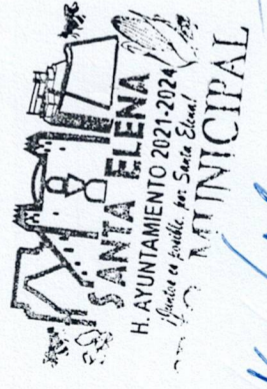 SANTA ELENA
H. AYUNTAMIENTO 2021-2024
¡Juntos es posible, por Santa Elena!
MUNICIPAL